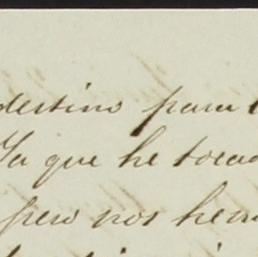 destino para
Ya que he toca
pero nos hem